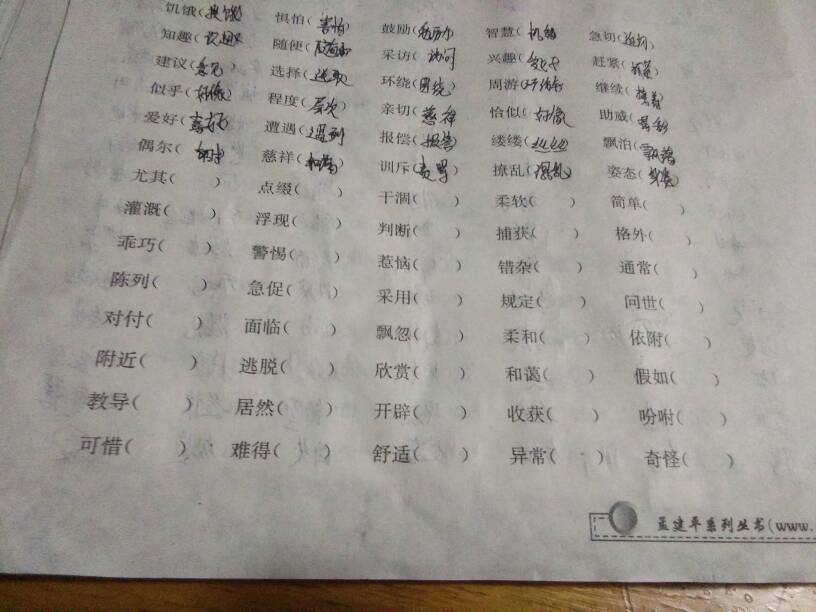 饥饿( ) 惧怕(害怕) 鼓励( ) 智慧(机智) 急切(迫切)
知趣(识趣) 随便(随意) 采访(访问) 兴趣( ) 赶紧( )
建议(意见) 选择(选取) 环绕(围绕) 周游( ) 继续(接着)
似乎(好像) 程度(层次) 亲切(慈祥) 恰似(好像) 助威( )
爱好(喜好) 遭遇(遇到) 报偿(报答) 缕缕(丝丝) 飘泊(飘荡)
偶尔( ) 慈祥(和蔼) 训斥(责骂) 撩乱(混乱) 姿态( )
尤其( ) 点缀( ) 干涸( ) 柔软( ) 简单( )
灌溉( ) 浮现( ) 判断( ) 捕获( ) 格外( )
乖巧( ) 警惕( ) 惹恼( ) 错杂( ) 通常( )
陈列( ) 急促( ) 采用( ) 规定( ) 问世( )
对付( ) 面临( ) 飘忽( ) 柔和( ) 依附( )
附近( ) 逃脱( ) 欣赏( ) 和蔼( ) 假如( )
教导( ) 居然( ) 开辟( ) 收获( ) 吩咐( )
可惜( ) 难得( ) 舒适( ) 异常( ) 奇怪( )
孟建平系列丛书(www.